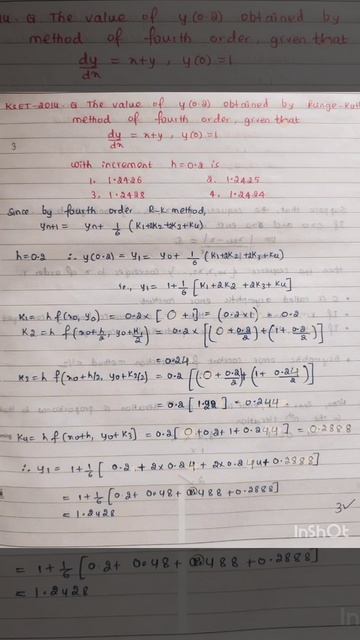 14. Q The value of y(0.2) obtained by
method of fourth order, given that
dy/dx = x+y , y(0)=1
KSET-2014. Q The value of y(0.2) obtained by Runge-Kutt
method of fourth order, given that
dy/dx = x+y , y(0)=1
3
with increment h=0.2 is
1. 1.2426 2. 1.2425
3. 1.2428 4. 1.2424
Since by fourth order R-K method,
yn+1 = yn + 1/6 (K1+2K2+2K3+K4)
h=0.2 ∴ y(0.2) = y1 = y0 + 1/6 (K1+2K2+2K3+K4)
i.e., y1 = 1+1/6 [K1+2K2+2K3+K4]
K1= h f(x0,y0) = 0.2x [0+1] = (0.2x1) = 0.2
K2 = h f(x0+h/2, y0+K1/2) = 0.2x [(0+0.2/2)+(1+0.2/2)]
= 0.24
K3=h f(x0+h/2, y0+K2/2) = 0.2 [(0+0.2/2)+(1+0.24/2)]
= 0.2[1.22] = 0.244
K4=h f(x0+h, y0+K3) = 0.2[0+0.2+1+0.244] = 0.2888
∴ y1 = 1+1/6 [0.2+2x0.24+2x0.244+0.2888]
= 1+1/6 [0.2+0.48+0.488+0.2888]
= 1.2428
3✓
InShOt
= 1+1/6 [0.2+0.48+0.488+0.2888]
= 1.2428
In